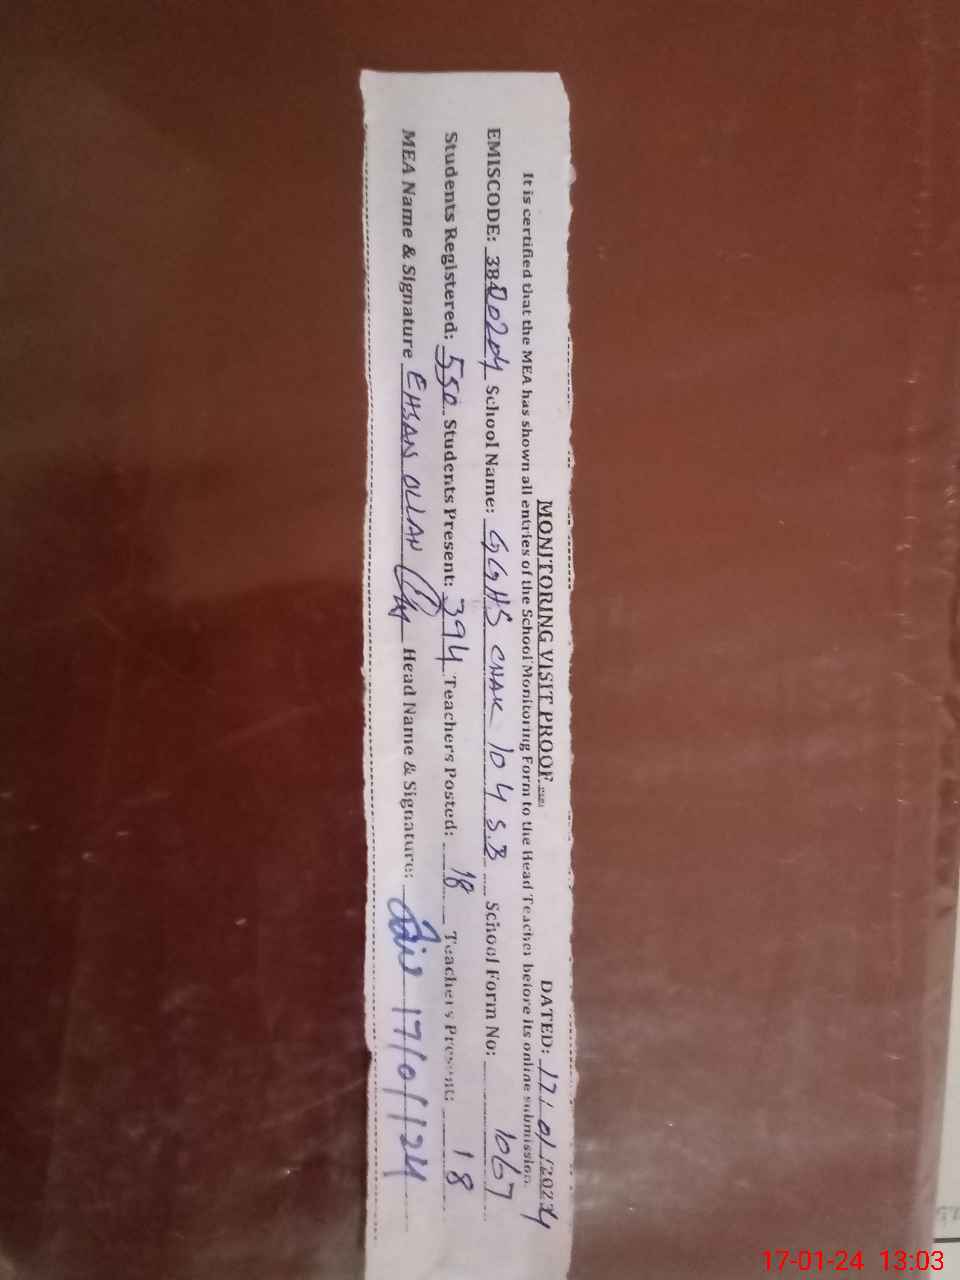 MONITORING VISIT PROOF DATED: 17/01/2024
It is certified that the MEA has shown all entries of the School Monitoring Form to the Head Teacher before its online submission.
EMISCODE: 38400204 School Name: GGHS CHAK 104 S.B School Form No: 1067
Students Registered: 550 Students Present: 394 Teachers Posted: 18 Teachers Present: 18
MEA Name & Signature EHSAN ULLAH Head Name & Signature: 17/01/24
17-01-24 13:03